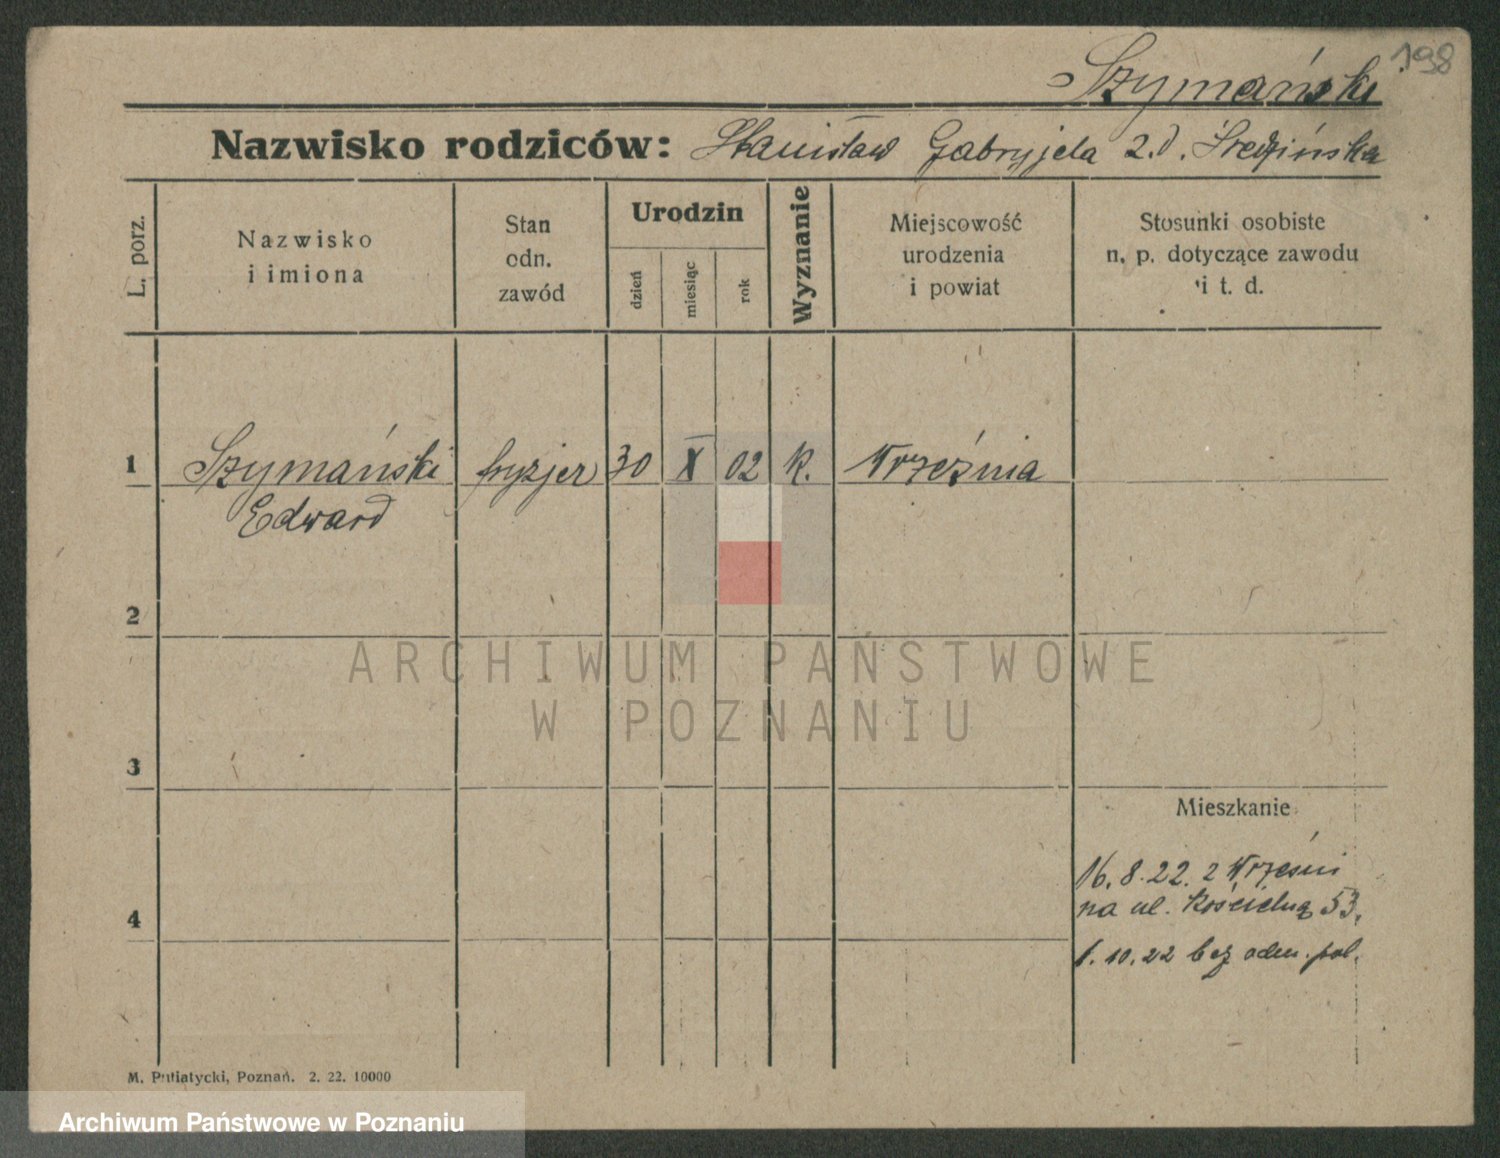 198
Szymański
Nazwisko rodziców: Stanisław Gabryjela z.d. Średzińska
L. porz.
Nazwisko
i imiona
Stan
odn.
zawód
Urodzin
dzień
miesiąc
rok
Wyznanie
Miejscowość
urodzenia
i powiat
Stosunki osobiste
n. p. dotyczące zawodu
i t. d.
1 Szymański fryzjer 30 X 02 k. Września
Edward
2
ARCHIWUM PAŃSTWOWE
W POZNANIU
3
Mieszkanie
16. 8. 22. z Wrześni
na ul. Kościelną 53.
4
1. 10. 22 bez odm. pol.
M. Putiatycki, Poznań. 2. 22. 10000
Archiwum Państwowe w Poznaniu